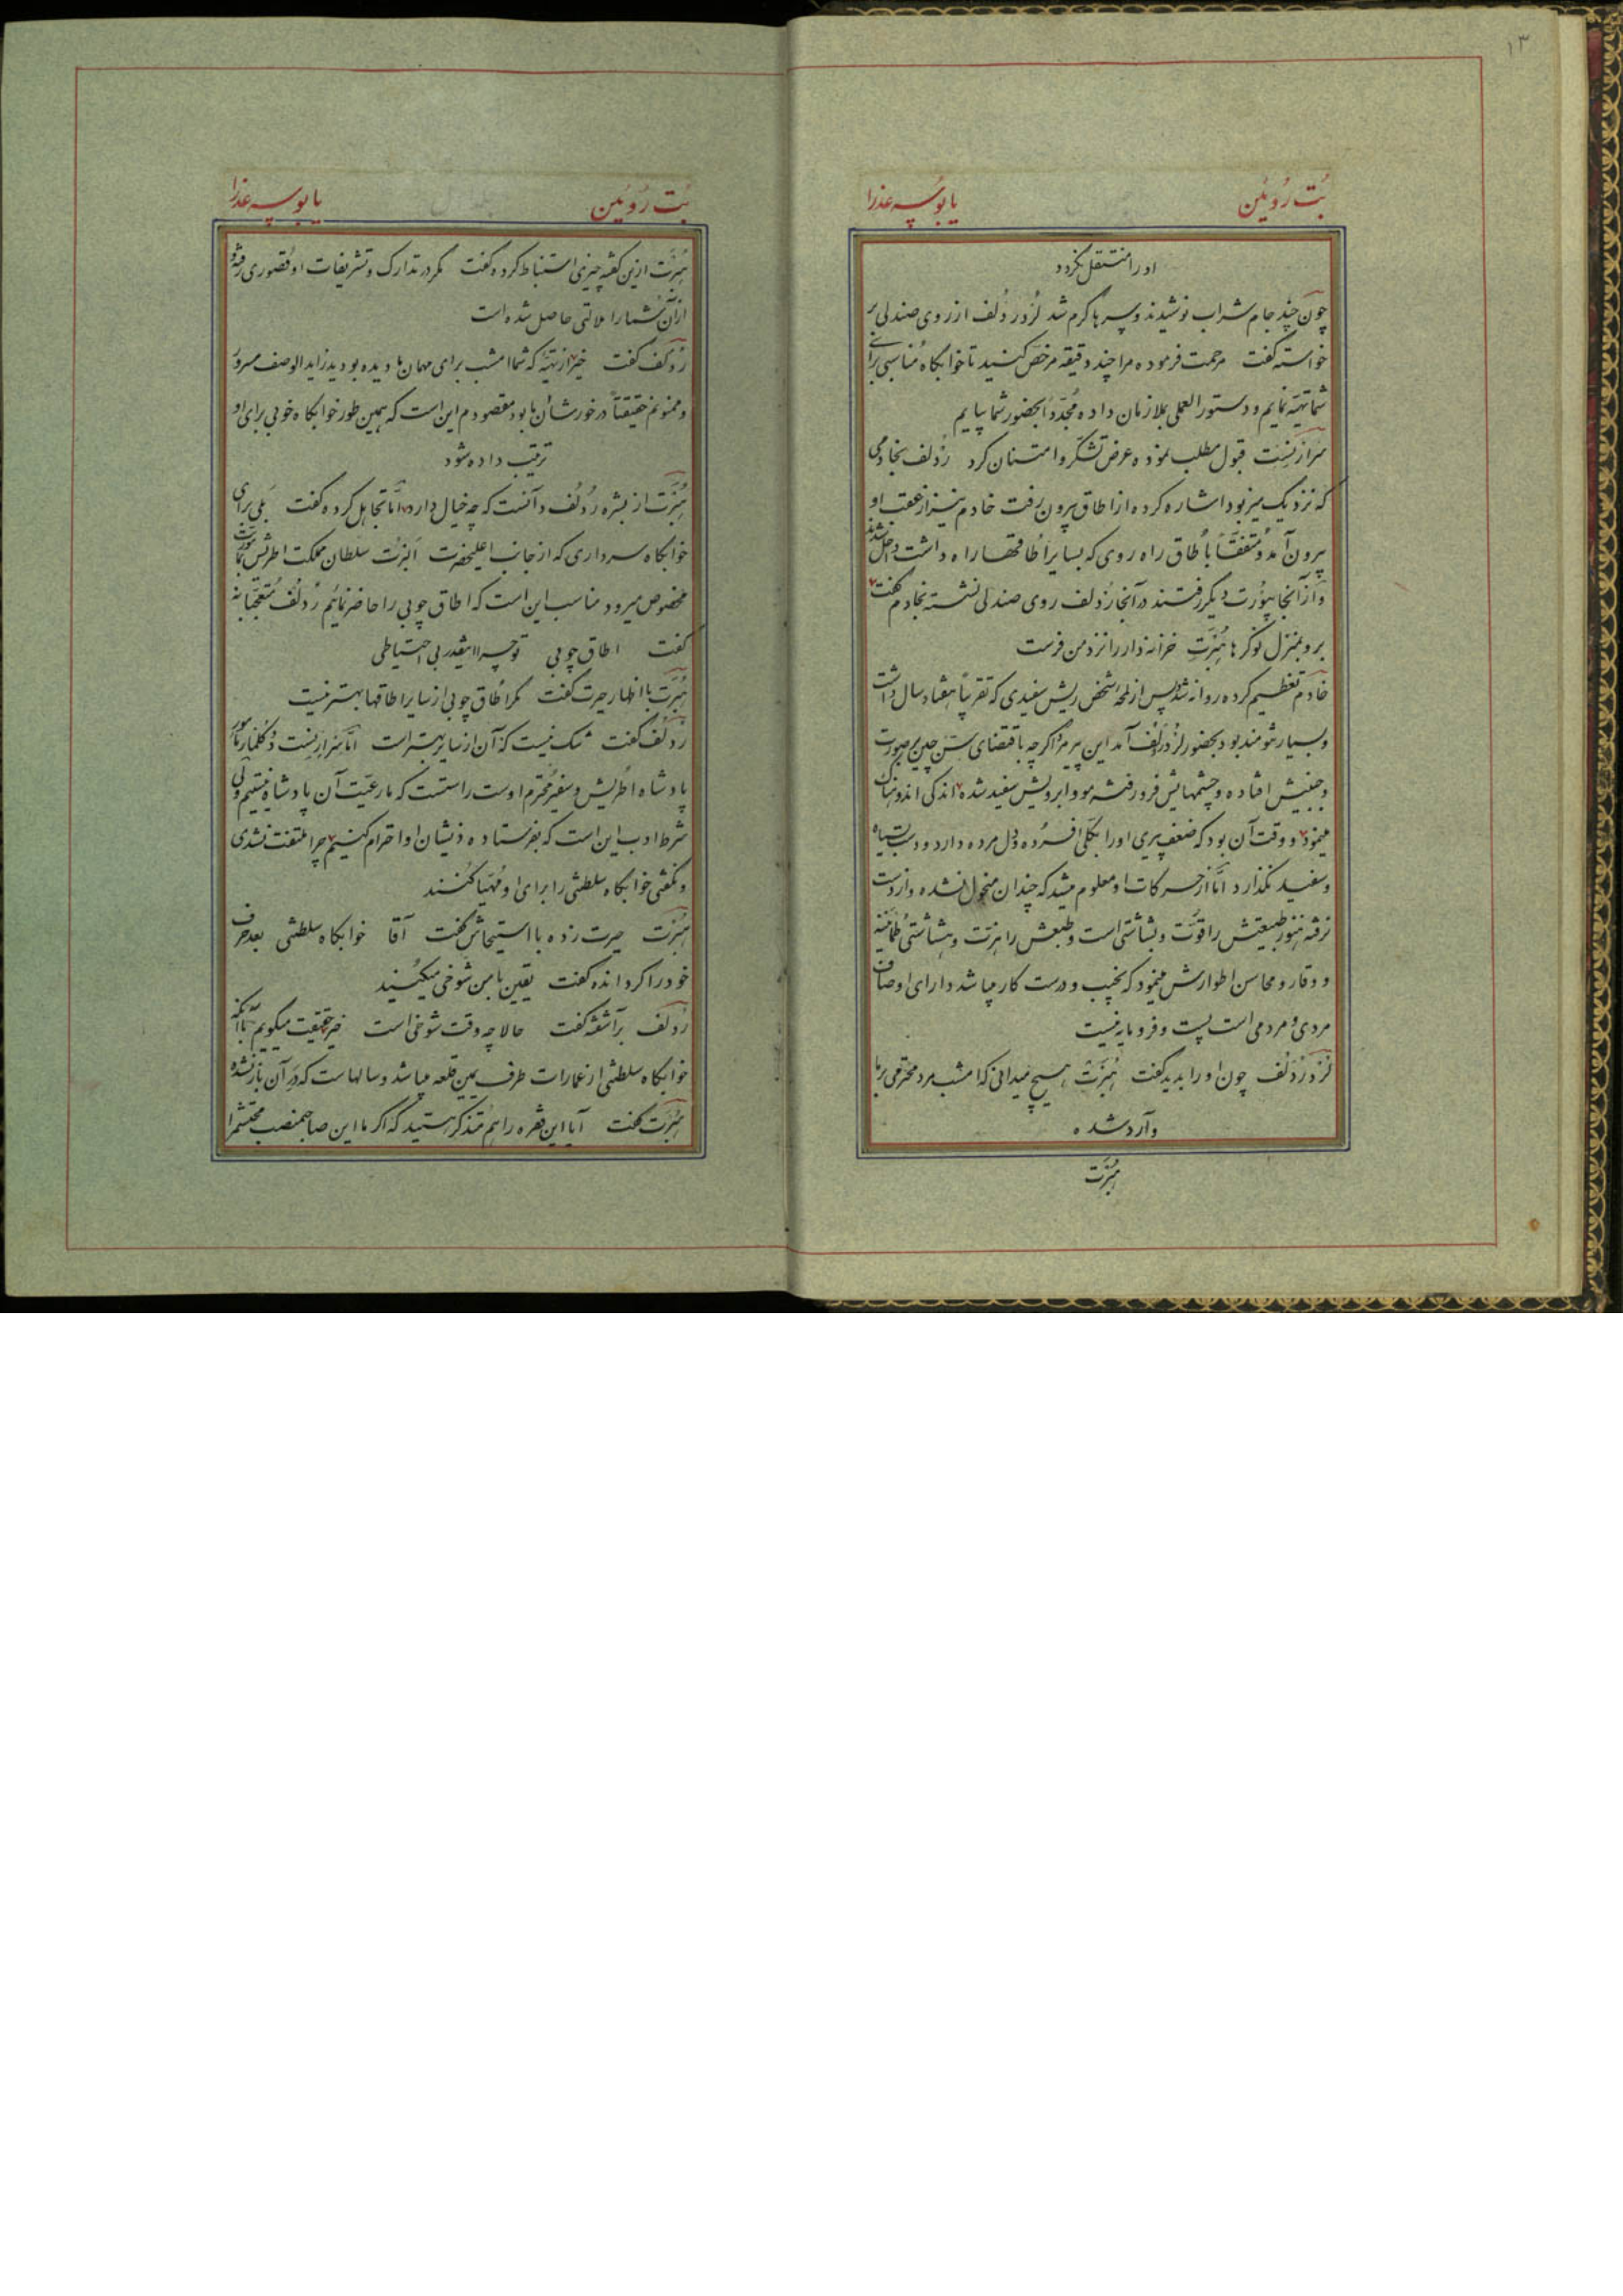 ۱۳
بُت رُویئن یا بوسه عذرا
او را منتقل گردد
چون چند جام شراب نوشیدند و سرها گرم شد لُرد رُدُلف از روی صندلی بر
خواسته گفت مرحمت فرموده مرا چند دقیقه مرخص کنید تا خوابگاه مناسبی برای
شما تهیّه نمایم و دستورالعملی بملازمان داده مُجدّداً بحضور شما بیایم
قبول مطلب نموده عرض تشکّر و امتنان کرد رُدلف بخادمی
که نزدیک میز بود اشاره کرده از اطاق بیرون رفت خادم نیز از عقب او
بیرون آمد و متفقاً باُطاق راه روی که بسایر اُطاقها راه داشت داخل شدند
و از آنجا دیگر رفتند در آنجا رُدلف روی صندلی نشسته بخادم گفت
برو بمنزل نوکرها هُبرَت خزانه‌دار را نزد من فرست
خادم تعظیم کرده روانه شد پس از لمحهٔ شخص ریش سفیدی که تقریباً هفتاد سال داشت
و بسیار تنومند بود بحضور لُرد رُدلف آمد این پیر مرد اگرچه باقتضای سنّ چین بر صورت
و جبینش افتاده و چشمهایش فرو رفته مو و ابرویش سفید شده اندکی
مینمود و وقت آن بود که ضعف پیری او را بکلّی افسُرده و دل مرده دارد و دست بسیاه
و سفید نگذارد امّا از حرکات او معلوم میشد که چندان منحول نشده و از دست
نرفته هنوز طبیعتش را قوّت و بشاشتی است و طبعش را
و وقار و محاسن اطوارش مینمود که نجیب و درست کار میباشد دارای اوصاف
مردی و مردمی است پست و فرومایه نیست
لُرد رُدلف چون او را بدید گفت هُبرَت هیچ میدانی که امشب مرد محترمی بر ما
وارد شده
هُبرت
بُت رُویئن یا بوسه عذرا
هُبرَت ازین گفته چیزی استنباط کرده گفت مگر در تدارک و تشریفات او قصوری رفته و
از آن شما را ملالتی حاصل شده است
رُدلف گفت خیر از تهیّهٔ که شما امشب برای مهمان ما دیده بودید زاید الوصف مسرور
و ممنونم حقیقتاً در خور شأن ما بود مقصودم این است که همین طور خوابگاه خوبی برای او
ترتیب داده شود
هُبرَت از بشره رُدُلف دانست که چه خیال دارد امّا تجاهل کرده گفت بلی برای
خوابگاه سرداری که از جانب اعلیحضرت اَلبرت سلطان مملکت اطریش
مخصوص میرود مناسب این است که اطاق چوبی را حاضر نمائیم رُدلف متعجّبانه
گفت اطاق چوبی تو چرا اینقدر بی احتیاطی
هُبرت با اظهار حیرت گفت مگر اُطاق چوبی از سایر اطاقها بهتر نیست
رُدلف گفت شک نیست که آن از سایر بهتر است امّا
پادشاه اُطریش و سفیر محترم اوست راست است که ما رعیّت آن پادشاه نیستیم ولی
شرط ادب این است که بفرستاده ذیشان او احترام کنیم چرا ملتفت نشدی
و نگفتی خوابگاه سلطنتی را برای او مُهیّا کنند
هُبرت حیرت زده با استیحاش گفت آقا خوابگاه سلطنتی بعد حرف
خود را گردانده گفت یقین با من شوخی میکنید
رُدلف برآشفته گفت حالا چه وقت شوخی است خیر حقیقت میگویم با آنکه
خوابگاه سلطنتی از عمارات طرف یمین قلعه میباشد و سالهاست که در آن باز نشده
هُبرت گفت آیا این فقره را هم متذکّر هستید که اگر ما این صاحبمنصب محتشم را